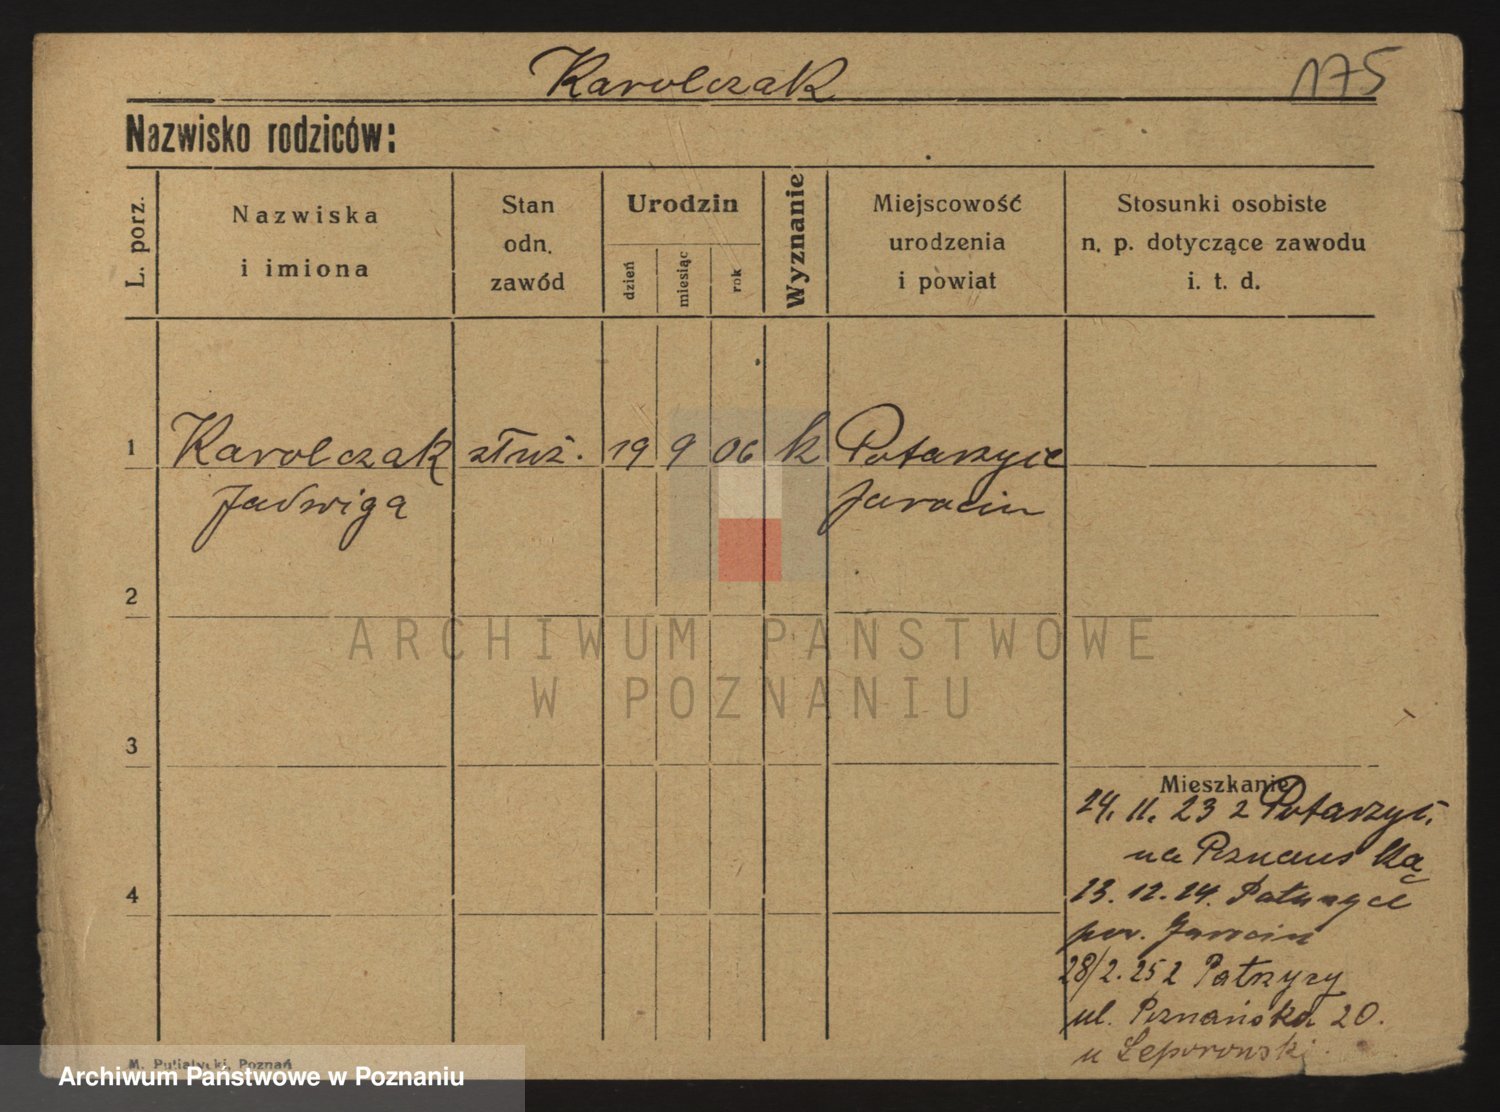 Karolczak 175
Nazwisko rodziców:
L. porz.
Nazwiska
i imiona
Stan
odn.
zawód
Urodzin
dzień
miesiąc
rok
Wyznanie
Miejscowość
urodzenia
i powiat
Stosunki osobiste
n. p. dotyczące zawodu
i. t. d.
1 Karolczak służ. 19 9 06 k Potarzyce
Jadwiga Jarocin
2
ARCHIWUM PAŃSTWOWE
W POZNANIU
3
Mieszkanie
24. 11. 23 z Potarzyc.
na Poznańską
4
23. 12. 24.
pow. Jarocin
28/2. 25 z
ul. Poznańska 20.
u Leporowski
M. Putiatycki, Poznań
Archiwum Państwowe w Poznaniu